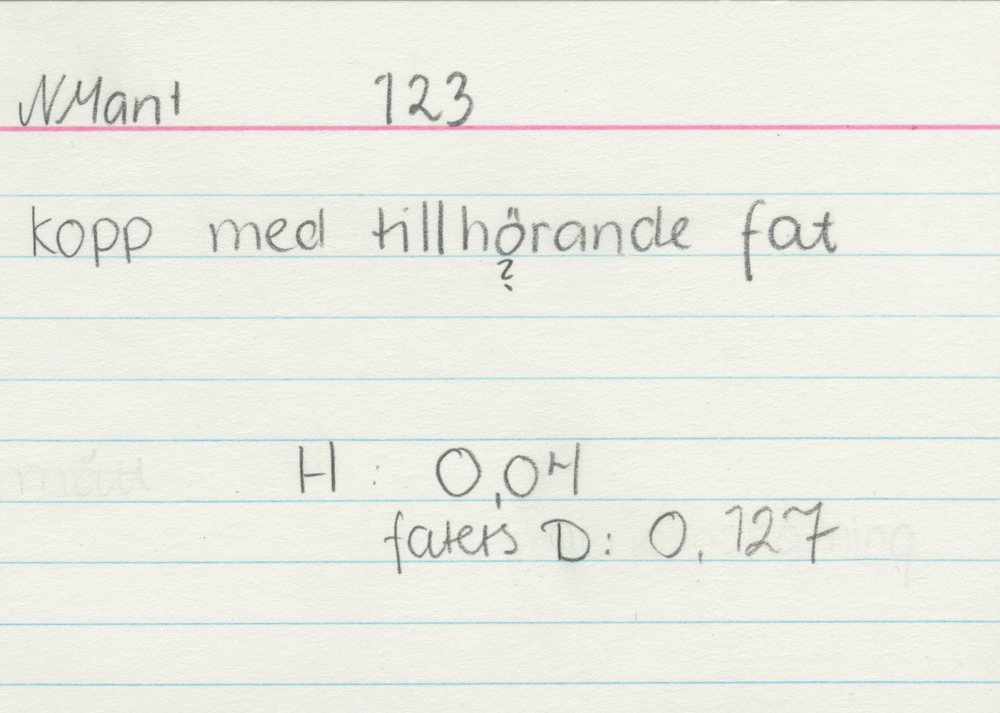 NMant 123
kopp med tillhörande fat
?
H: 0,04
fatets D: 0,127